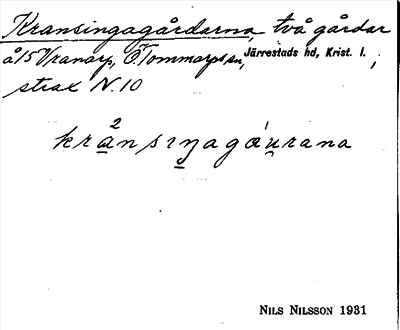 Kransingagårdarna, två gårdar
å 15 Vranarp, Ö. Tommarps sn, Järrestads hd, Krist. l.;
strax N. 10
krånsıŋagáu̯rana
NILS NILSSON 1931